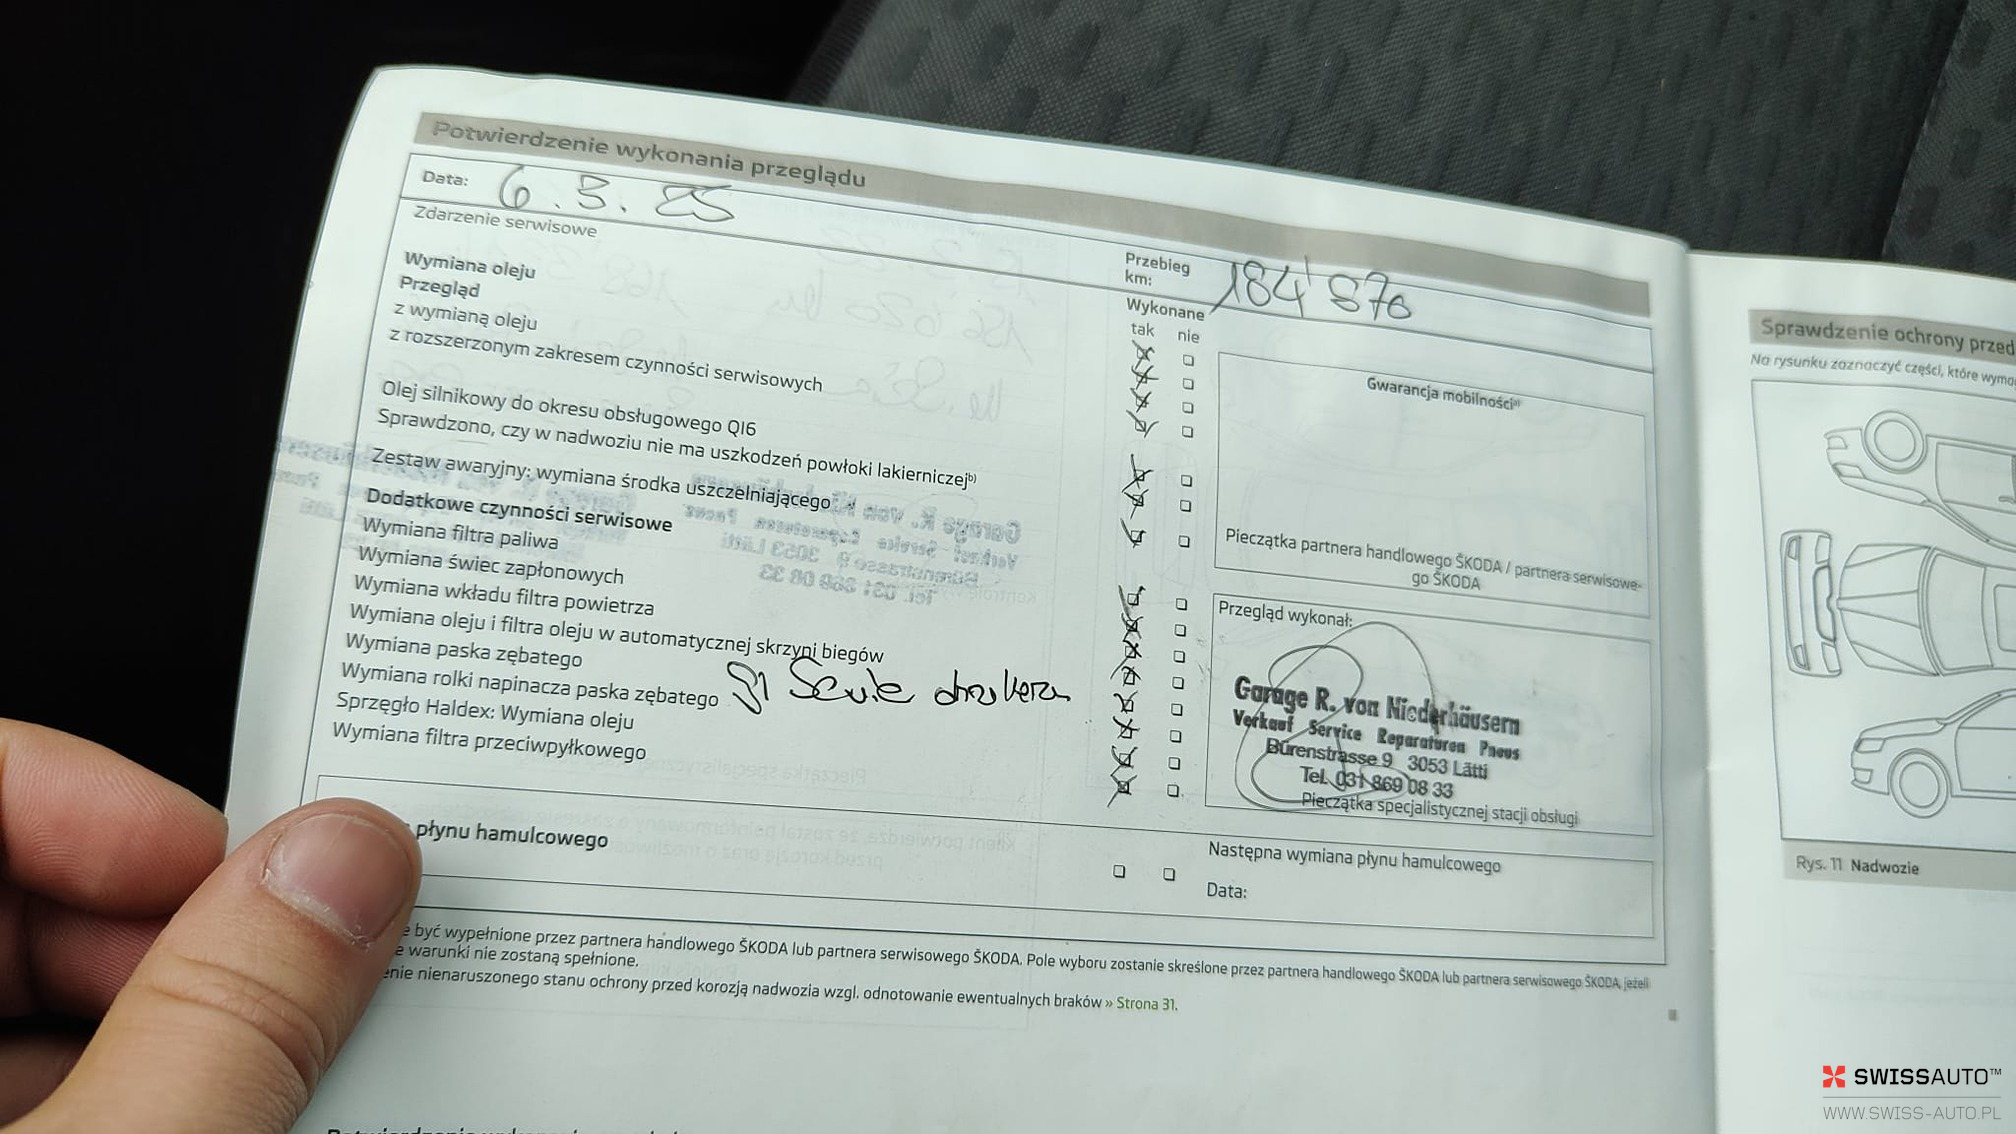 Potwierdzenie wykonania przeglądu
Data: 6.3.25
Przebieg
km: 184'870
Zdarzenie serwisowe
Wykonane
tak nie
Wymiana oleju
Przegląd
z wymianą oleju
z rozszerzonym zakresem czynności serwisowych
Olej silnikowy do okresu obsługowego QI6
Sprawdzono, czy w nadwoziu nie ma uszkodzeń powłoki lakierniczej b)
Zestaw awaryjny: wymiana środka uszczelniającego
Dodatkowe czynności serwisowe
Wymiana filtra paliwa
Wymiana świec zapłonowych
Wymiana wkładu filtra powietrza
Wymiana oleju i filtra oleju w automatycznej skrzyni biegów
Wymiana paska zębatego
Wymiana rolki napinacza paska zębatego
Sprzęgło Haldex: Wymiana oleju
Wymiana filtra przeciwpyłkowego
Gwarancja mobilności a)
Pieczątka partnera handlowego ŠKODA / partnera serwisowe-
go ŠKODA
Przegląd wykonał:
Garage R. von Niederhäusern
Verkauf Service Reparaturen Pneus
Bürenstrasse 9 3053 Lätti
Tel. 031 869 08 33
Pieczątka specjalistycznej stacji obsługi
płynu hamulcowego
Następna wymiana płynu hamulcowego
Data:
być wypełnione przez partnera handlowego ŠKODA lub partnera serwisowego ŠKODA. Pole wyboru zostanie skreślone przez partnera handlowego ŠKODA lub partnera serwisowego ŠKODA, jeżeli
warunki nie zostaną spełnione.
nienaruszonego stanu ochrony przed korozją nadwozia wzgl. odnotowanie ewentualnych braków » Strona 31.
Sprawdzenie ochrony przed
Na rysunku zaznaczyć części, które
Rys. 11 Nadwozie
SWISSAUTO™
WWW.SWISS-AUTO.PL